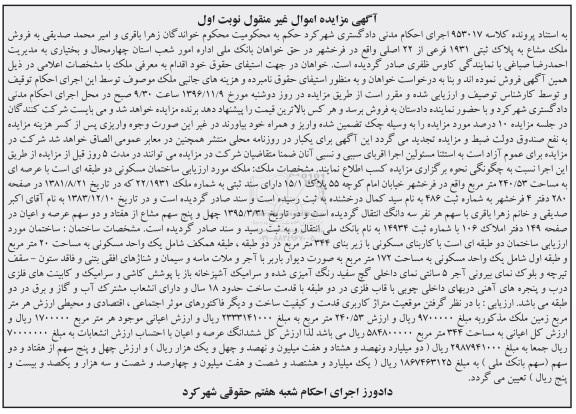 آگهی مزایده اموال غیر منقول نوبت اول
به استناد پرونده کلاسه ۹۵۳۰۱۷ اجرای احکام مدنی دادگستری شهرکرد حکم به محکومیت محکوم خواندگان زهرا باقری و امیر محمد صدیقی به فروش
ملک مشاع به پلاک ثبتی ۱۹۳۱ فرعی از ۲۲ اصلی واقع در فرخشهر در حق خواهان بانک ملی اداره امور شعب استان چهارمحال و بختیاری به مدیریت
احمدرضا صباغی با نمایندگی کاوس ظفری صادر گردیده است. خواهان در جهت استیفای حقوق خود اقدام به معرفی ملک با مشخصات اعلامی در ذیل
همین آگهی فروش نموده اند و بنا به درخواست خواهان و به منظور استیفای حقوق نامبرده و هزینه های جانبی ملک موصوف توسط این اجرای احکام توقیف
و توسط کارشناس توصیف و ارزیابی شده و مقرر است از طریق مزایده در روز دوشنبه مورخ ۱۳۹۶/۱۱/۹ ساعت ۹/۳۰ صبح در محل اجرای احکام مدنی
دادگستری شهرکرد و با حضور نماینده دادستان به فروش برسد و هر کس بالاترین قیمت را پیشنهاد دهد برنده مزایده خواهد شد و می بایست شرکت کنندگان
در جلسه مزایده ۱۰ درصد مورد مزایده را به وسیله چک تضمین شده واریز و همراه خود بیاورند در غیر این صورت وجوه واریزی پس از کسر هزینه مزایده
به نفع صندوق دولت ضبط و مزایده تجدید می گردد این آگهی برای یکبار در روزنامه محلی منتشر همچنین در معابر عمومی الصاق خواهد شد شرکت در
مزایده برای عموم آزاد است به استثنا مسئولین اجرا اقربای سببی و نسبی آنان ضمنا متقاضیان شرکت در مزایده می توانند در مدت ۵ روز قبل از مزایده از طریق
این اجرا نسبت به چگونگی نحوه برگزاری مزایده کسب اطلاع نمایند. مشخصات ملک: ملک مورد ارزیابی ساختمان مسکونی دو طبقه است با عرصه ای
به مساحت ۲۴۰/۵۳ متر مربع واقع در فرخشهر خیابان امام کوچه ۵۵ پلاک ۱۵/۱ دارای سند ثبتی به شماره ملک ۲۲/۱۹۳۱ که در تاریخ ۱۳۸۱/۸/۲۱ در صفحه
۲۸۰ دفتر ۴ فرخشهر به شماره ثبت ۴۸۶ به نام سید کمال درخشنده به ثبت رسیده است و سند صادر گردیده است و در تاریخ ۱۳۸۳/۱۲/۱۰ به نام آقای اکبر
صدیقی و خانم زهرا باقری با سهم هر نفر سه دانگ انتقال گردیده است و در تاریخ ۱۳۹۵/۳/۳۱ چهل و پنج سهم مشاع از هفتاد و دو سهم عرصه و اعیان در
صفحه ۱۴۹ دفتر املاک ۱۰۶ با شماره ثبت ۱۴۹۳۴ به نام بانک ملی انتقال و به ثبت رسید و سند صادر گردیده است. مشخصات ساختمان : ساختمان مورد
ارزیابی ساختمان دو طبقه ای است با کاربندی مسکونی با زیر بنای ۳۴۴ متر مربع در دو طبقه ، طبقه همکف شامل یک واحد مسکونی به مساحت ۲۰ متر مربع
و طبقه اول شامل یک واحد مسکونی به مساحت ۱۷۲ متر مربع به صورت دیوار باربر با آجر و ملات ماسه و سیمان و شناژهای افقی بتنی و فاقد ستون - سقف
تیرچه و بلوک نمای بیرونی آجر ۵ سانتی نمای داخلی گچ سفید رنگ آمیزی شده و سرامیک آشپزخانه باز با پوشش کاشی و سرامیک و کابینت های فلزی
درب و پنجره های آهنی دربهای داخلی چوبی با قاب فلزی در دو طبقه با قدمت ساخت حدود ۱۸ سال و دارای انشعاب مشترک آب و گاز و برق در دو
طبقه می باشد. ارزیابی : با در نظر گرفتن موقعیت متراژ کاربری قدمت و کیفیت ساخت و دیگر فاکتورهای موثر اجتماعی ، اقتصادی و محیطی ارزش هر متر
مربع زمین ملک مذکوربه مبلغ ۹۷۰۰۰۰۰ ریال و ارزش ۲۴۰/۵۳ متر مربع به مبلغ ۲۳۳۳۱۴۱۰۰۰ ریال و ارزش اعیانی موجود هر متر مربع ۱۷۰۰۰۰۰ ریال و
ارزش کل اعیانی به مساحت ۳۴۴ متر مربع ۵۸۴۸۰۰۰۰۰ ریال می باشد لذا ارزش کل ششدانگ عرصه و اعیان با احتساب ارزش انشعابات به مبلغ ۷۰۰۰۰۰۰۰
ریال جمعا به مبلغ ۲۹۸۷۹۴۱۰۰۰ ریال ( دو میلیارد ونهصد و هشتاد و هفت میلیون و نهصد و چهل و یک هزار ریال ) و ارزش چهل و پنج سهم از هفتاد و دو
سهم (سهم بانک ملی ) به مبلغ ۱۸۶۷۴۶۳۱۲۵ ریال ( یک میلیارد و هشتصد و شصت و هفت میلیون و چهارصد و شصت و سه هزار و یکصد و بیست و
پنج ریال ) تعیین می گردد.
دادورز اجرای احکام شعبه هفتم حقوقی شهرکرد